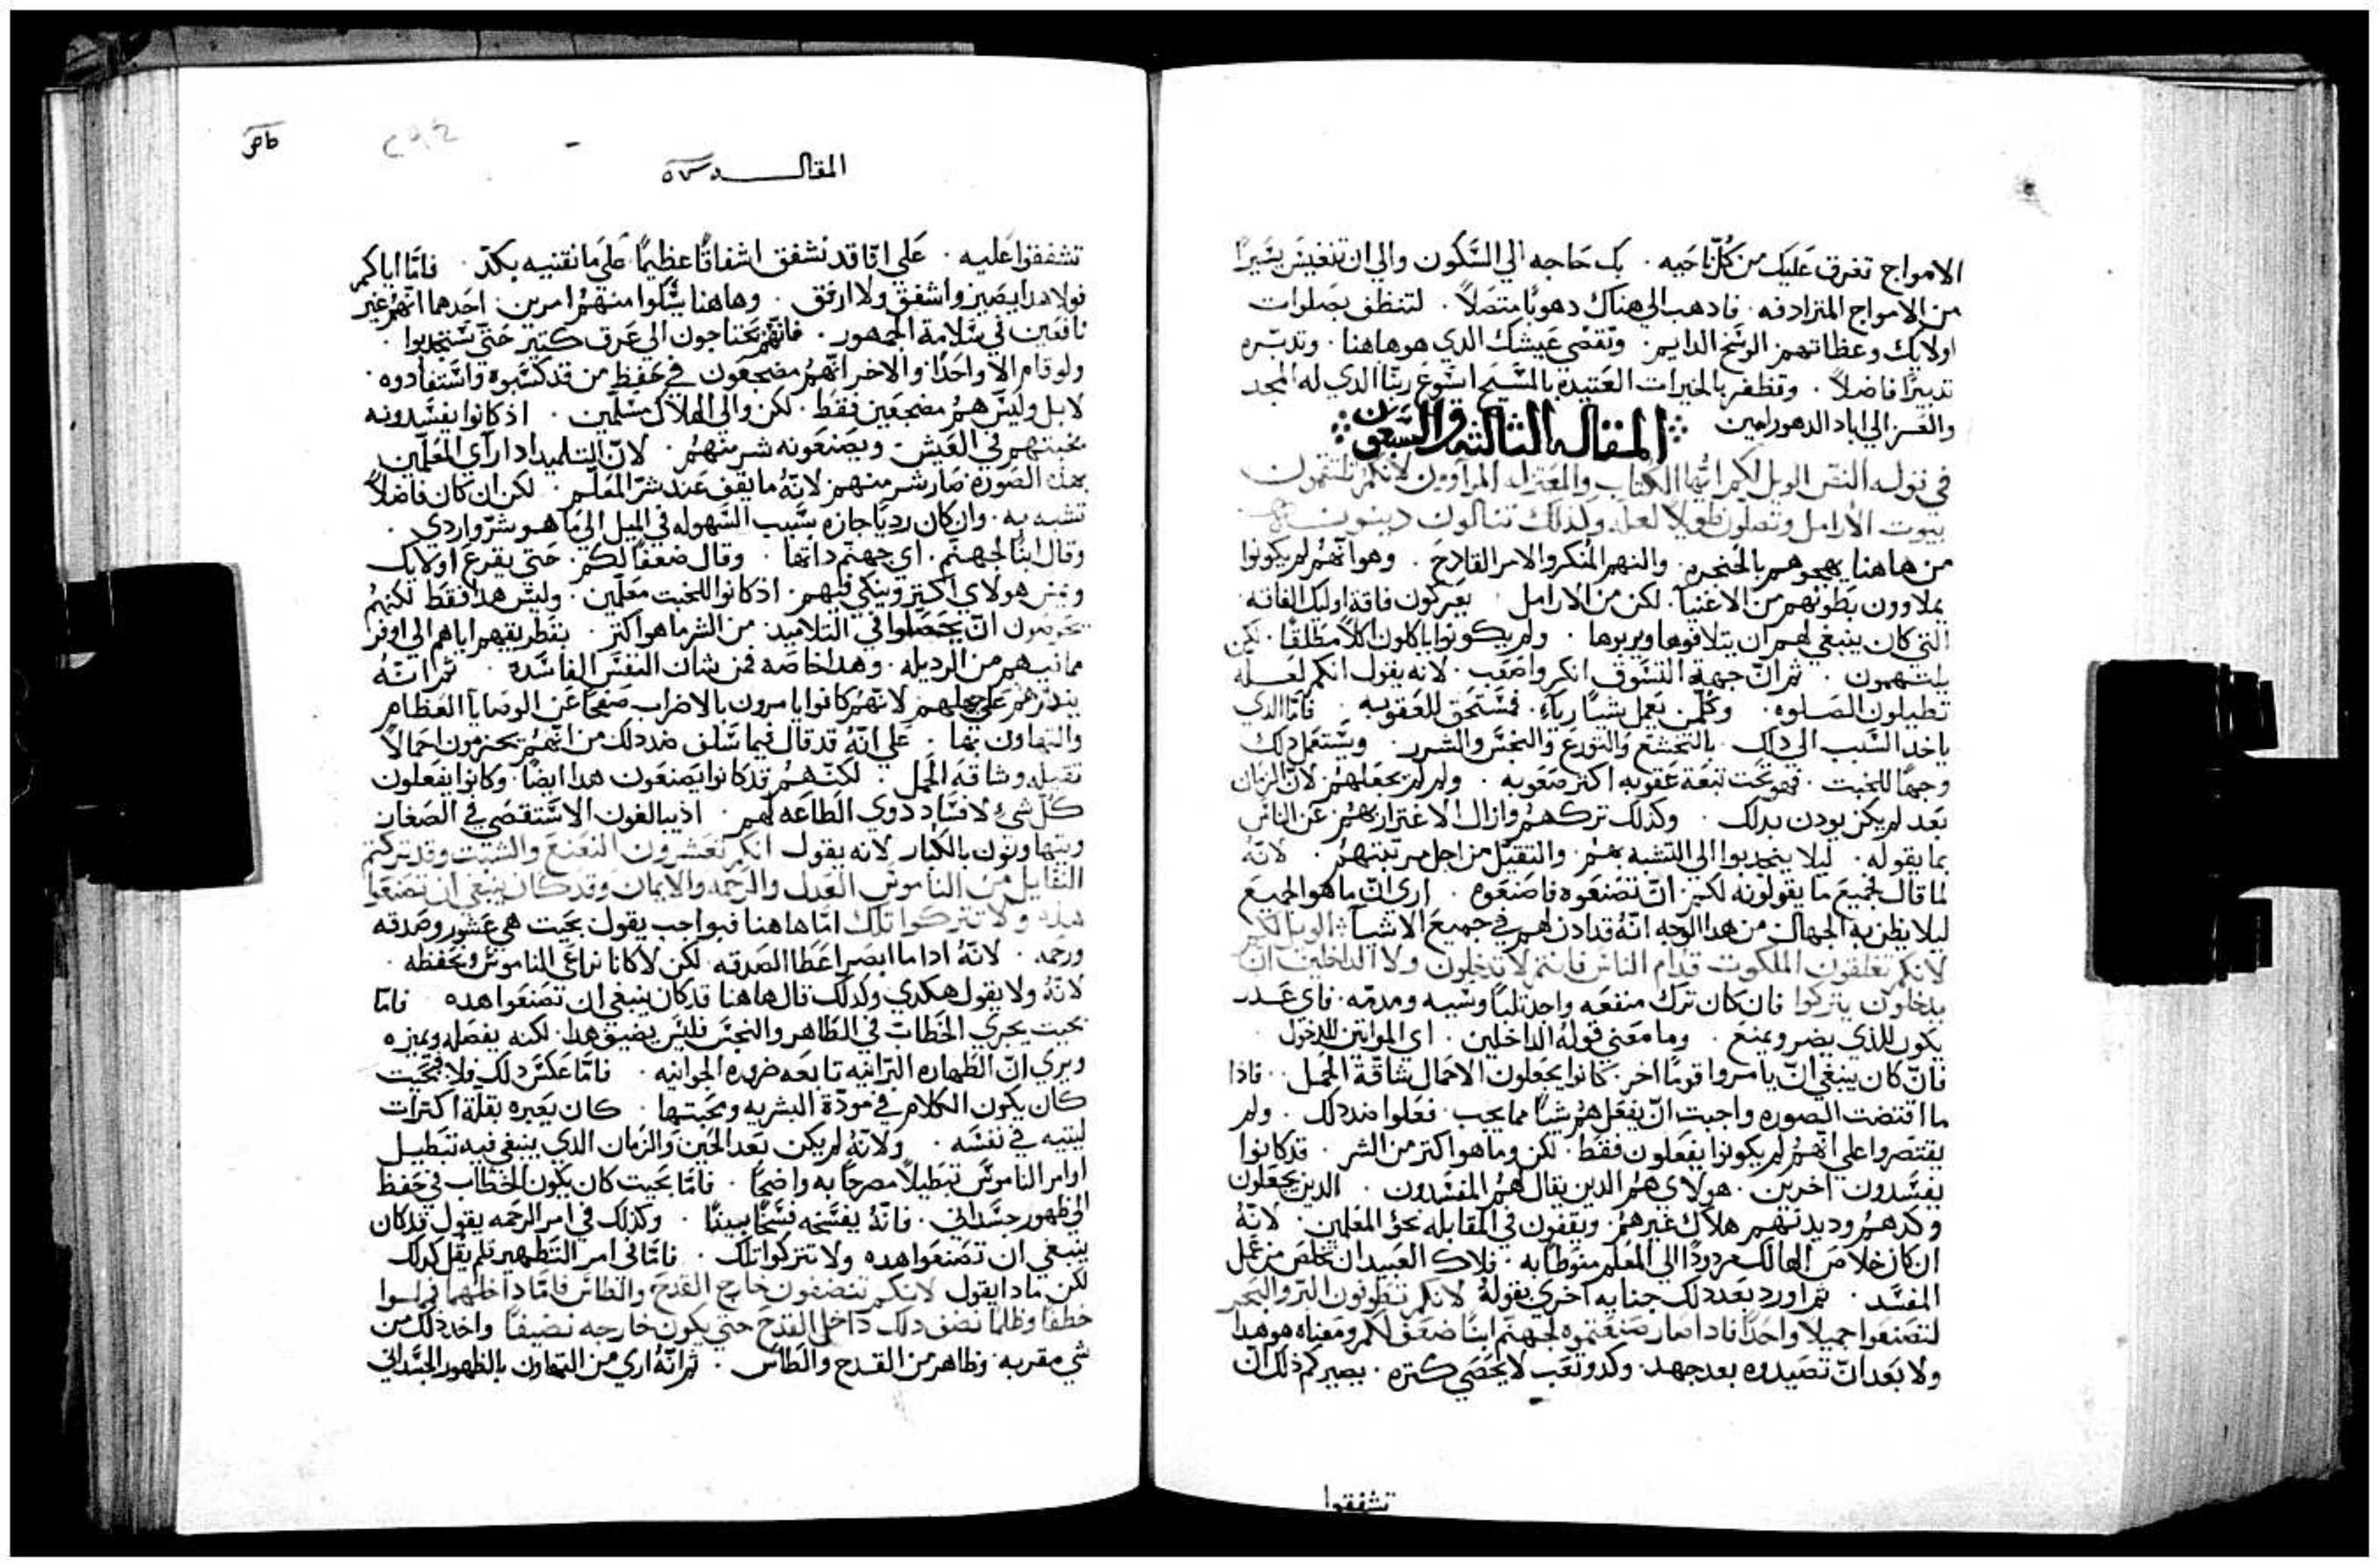 الامواج تغرق عليك من كل ناحيه . بك حاجه الي السكون والي ان تنغيس يسيرًا
من الامواج المترادفه . فادهب الي هناك دهوبًا متصلاً . لتنظف بصلوات
اولايك وعظاتهم الوسخ الدايم . وتقضي عيشك الدي هو هاهنا . وتدبره
تدبيرًا فاضلاً . وتظفر بالخيرات العتيده بالمسيح ايسوع ربنا الدي له المجد
والعز الي اباد الدهور امين
المقاله الثالثه والسبعون
في قوله النص الويل لكم ايها الكتاب والمعتزله المراوون لانكم تلتقمون
بيوت الارامل وتصلون طويلا لعله ولذلك تنالون دينونه
من هاهنا يهجوهم بالحنجره . والنهم المنكر والامر القادح . وهو انهم لم يكونوا
يملاوون بطونهم من الاغنيا . لكن من الارامل . يعركون فاقة اوليك الفاقه
التي كان ينبغي لهم ان يتلافوها ويربوها . ولم يكونوا ياكلون اكلاً مطلقًا . لكن
يلتهمون . ثم ان جهة التسوق انكر واصعب . لانه يقول انكم لعله
تطيلون الصلوه . وكل من يعمل شيًا رياءً . فمستحق للعقوبه . فاما الدي
ياخد السبب الي دلك بالتخشع والتورع والنجس والشرر . ويستعمل دلك
وجهًا للخبث . فهو تحت تبعة عقوبه اكثر صعوبه . ولم لم يجعلهم لان الزمان
بعد لم يكن يودن بدلك . وكذلك تركهم وازال الاغترار بهم عن الناس
بما يقوله . ليلا ينجدبوا الي التشبه بهم . والتقيل من اجل مرتبتهم . لانه
لما قال جميع ما يقولونه لكم ان تصنعوه فاصنعوه . اري ان ما هو الجميع
ليلا يظن به الجهال من هدا الوجه انه قد ادن لهم في جميع الاشيآ الويل لكم
لانكم تغلقون الملكوت قدام الناس فانتم لا تدخلون ولا الداخلين ان
يدخلون يتركوا فان كان ترك منفعه واحد ثلبًا وسبه ومدمه . فاي عدر
يكون للذي يضر ويمنع . وما معني قوله الداخلين . اي المواتين للدخول .
فان كان ينبغي ان يامروا قومًا اخر . كانوا يجعلون الاحمال شاقة الحمل . فاذا
ما اقتضت الصوره واجبت ان يفعل هم شيًا مما يجب . فعلوا ضد دلك . ولم
يقتصروا علي انهم لم يكونوا يفعلون فقط . لكن وما هو اكثر من الشر . قد كانوا
يفسدون اخرين . هولاي هم الدين يقال لهم المفسدون . الدين يجعلون
وكدهم وديدنهم هلاك غيرهم . ويقفون في المقابله نحو المعلمين . لانه
ان كان خلاص الهالك مردودًا الي المعلم منوطًا به . فلاك العبيد ان تخلص من عمل
المفسد . ثم اورد بعد دلك جنايه اخري بقوله لانكم تطوفون البر والبحر
لتصنعوا جميلا واحدًا فادا صار صنعتموه لجهنم ابنًا ضعف لكم ومعناه هو هدا
ولا بعد ان تصيدوه بعد جهد . وكد وتعب لا يحصي كثره . يصيركم ذلك ان
تشفقوا
المقالــــه
تشفقوا عليه . علي انا قد نشفق اشفاقًا عظيمًا علي ما نقتنيه بكد . فاما اياكم
فولا هدا يصيز واشفق ولا ارفق . وهاهنا يثلوا منهم امرين . احدهما انهم غير
نافعين في سلامة الجمهور . فانهم يحتاجون الي عرق كثير حتي يستجدبوا .
ولو قام الا واحدًا . والاخر انهم مضجعون في حفظ من قد كسبوه واستفادوه .
لا بل وليس هم مضجعين فقط . لكن والي الهلاك مسلمين . اذ كانوا يفسدونه
بخبثهم في العيش ويصنعونه شر منهم . لان التلميد ادا رآي المعلمين
بهذه الصوره صار شر منهم لانه ما يقف عند شر المعلم . لكن ان كان فاضلاً
تشبه به . وان كان رديًا جازه بسبب السهوله في الميل الي ما هو شر واردي .
وقال ابنًا لجهنم . اي جهنم داتها . وقال ضعفًا لكم . حتي يقرع اولايك
ويمس هولاي اكثر وينكي فيهم . اذ كانوا للخبث معلمين . وليس هدا فقط لكنهم
يحرصون ان يحصلوا في التلاميد من الشر ما هو اكثر . بتطريقهم اياهم الي اوفر
مما فيهم من الرديله . وهدا خاصه فمن شان النفس الفاسده . ثم انه
يندرهم علي جهلهم لانهم كانوا يامرون بالاضراب صفحًا عن الوصايا العظام
والتهاون بها . علي انه قد قال فيما سلف ضد دلك من انهم يحزمون احمالاً
ثقيله وشاقة الحمل . لكنهم قد كانوا يصنعون هدا ايضًا . وكانوا يفعلون
كل شيء لافساد ذوي الطاعه لهم . اذ يبالغون الاستقصي في الصغار
ويتهاونون بالكبار لانه يقول انكم تعشرون النعنع والشبت وقد تركتم
الثقايل من الناموس العدل والرحمه والايمان وقد كان ينبغي ان تصنعوا
هذه ولا تتركوا تلك اما هاهنا فبواجب يقول بحيث هي عشور وصدقه
ورحمه . لانه ادا ما ابصر اعطا الصدقه . لكن لا كانا نراعي الناموس ونحفظه .
لانه ولا يقول هكدي وكدلك قال هاهنا قد كان ينبغي ان تصنعوا هده فاما
بحيث يجري الخطاب في الطاهر والنجس فليس يضيق هدا . لكنه يفصله ويميزه
ويري ان الطهاره البرانيه تابعه ضروره الجوانيه . فاما عكس دلك فلا فبحيث
كان يكون الكلام في مودة البشريه ومحبتها . كان يعيره بقلة اكتراث
لبتيه في نفسه . ولانه لم يكن بعد الحين والزمان الدي ينبغي فيه تبطيل
اوامر الناموس تبطيلاً مصرحًا به واضحًا . فاما بحيث كان يكون الخطاب في حفظ
الي ظهور جسداني . فانه يفسخه فسخًا بينًا . وكدلك في امر الرحمه يقول قد كان
ينبغي ان تصنعوا هده ولا تتركوا تلك . فاما في امر التطهير فلم يقل كدلك
لكن مادا يقول لانكم تنضفون خارج القدح والطاس فاما داخلهما فمملوا
خطفًا وظلمًا نضف دلك داخل القدح حتي يكون خارجه نضيفًا واخد ذلك من
شي مقربه وظاهر من القدح والطاس . ثم انه اري من التهاون بالظهور الجسداني